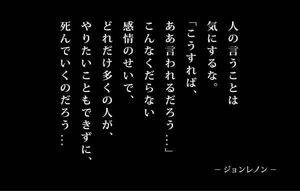 人の言うことは
気にするな。
「こうすれば、
ああ言われるだろう…」
こんなくだらない
感情のせいで、
どれだけ多くの人が、
やりたいこともできずに、
死んでいくのだろう…
– ジョンレノン –